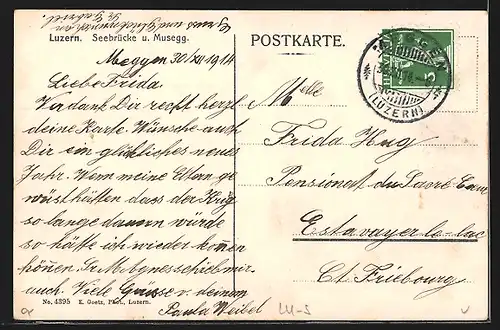 Luzern. Seebrücke u. Musegg.
POSTKARTE.
Meggen 30/XII 1914
Liebe Frida.
Verdank Dir recht herzl.
deine Karte. Wünsche auch
Dir ein glückliches neues
Jahr. Wenn meine Eltern ge
wüsthätten dass der Krieg
so lange dauern würde
so hätte ich wieder kom̅en
kön̅en. Sr. M. Agnes schrieb mir
auch. Viele Grüsse v. deiner
Paula Weibel
No. 4395 E. Goetz, Phot., Luzern.
MEGGEN
(LUZERN)
Melle
Frida Hug
Pensionat du Sacré Cœur
Estavayer-le-lac
Ct. Friebourg
LU-S